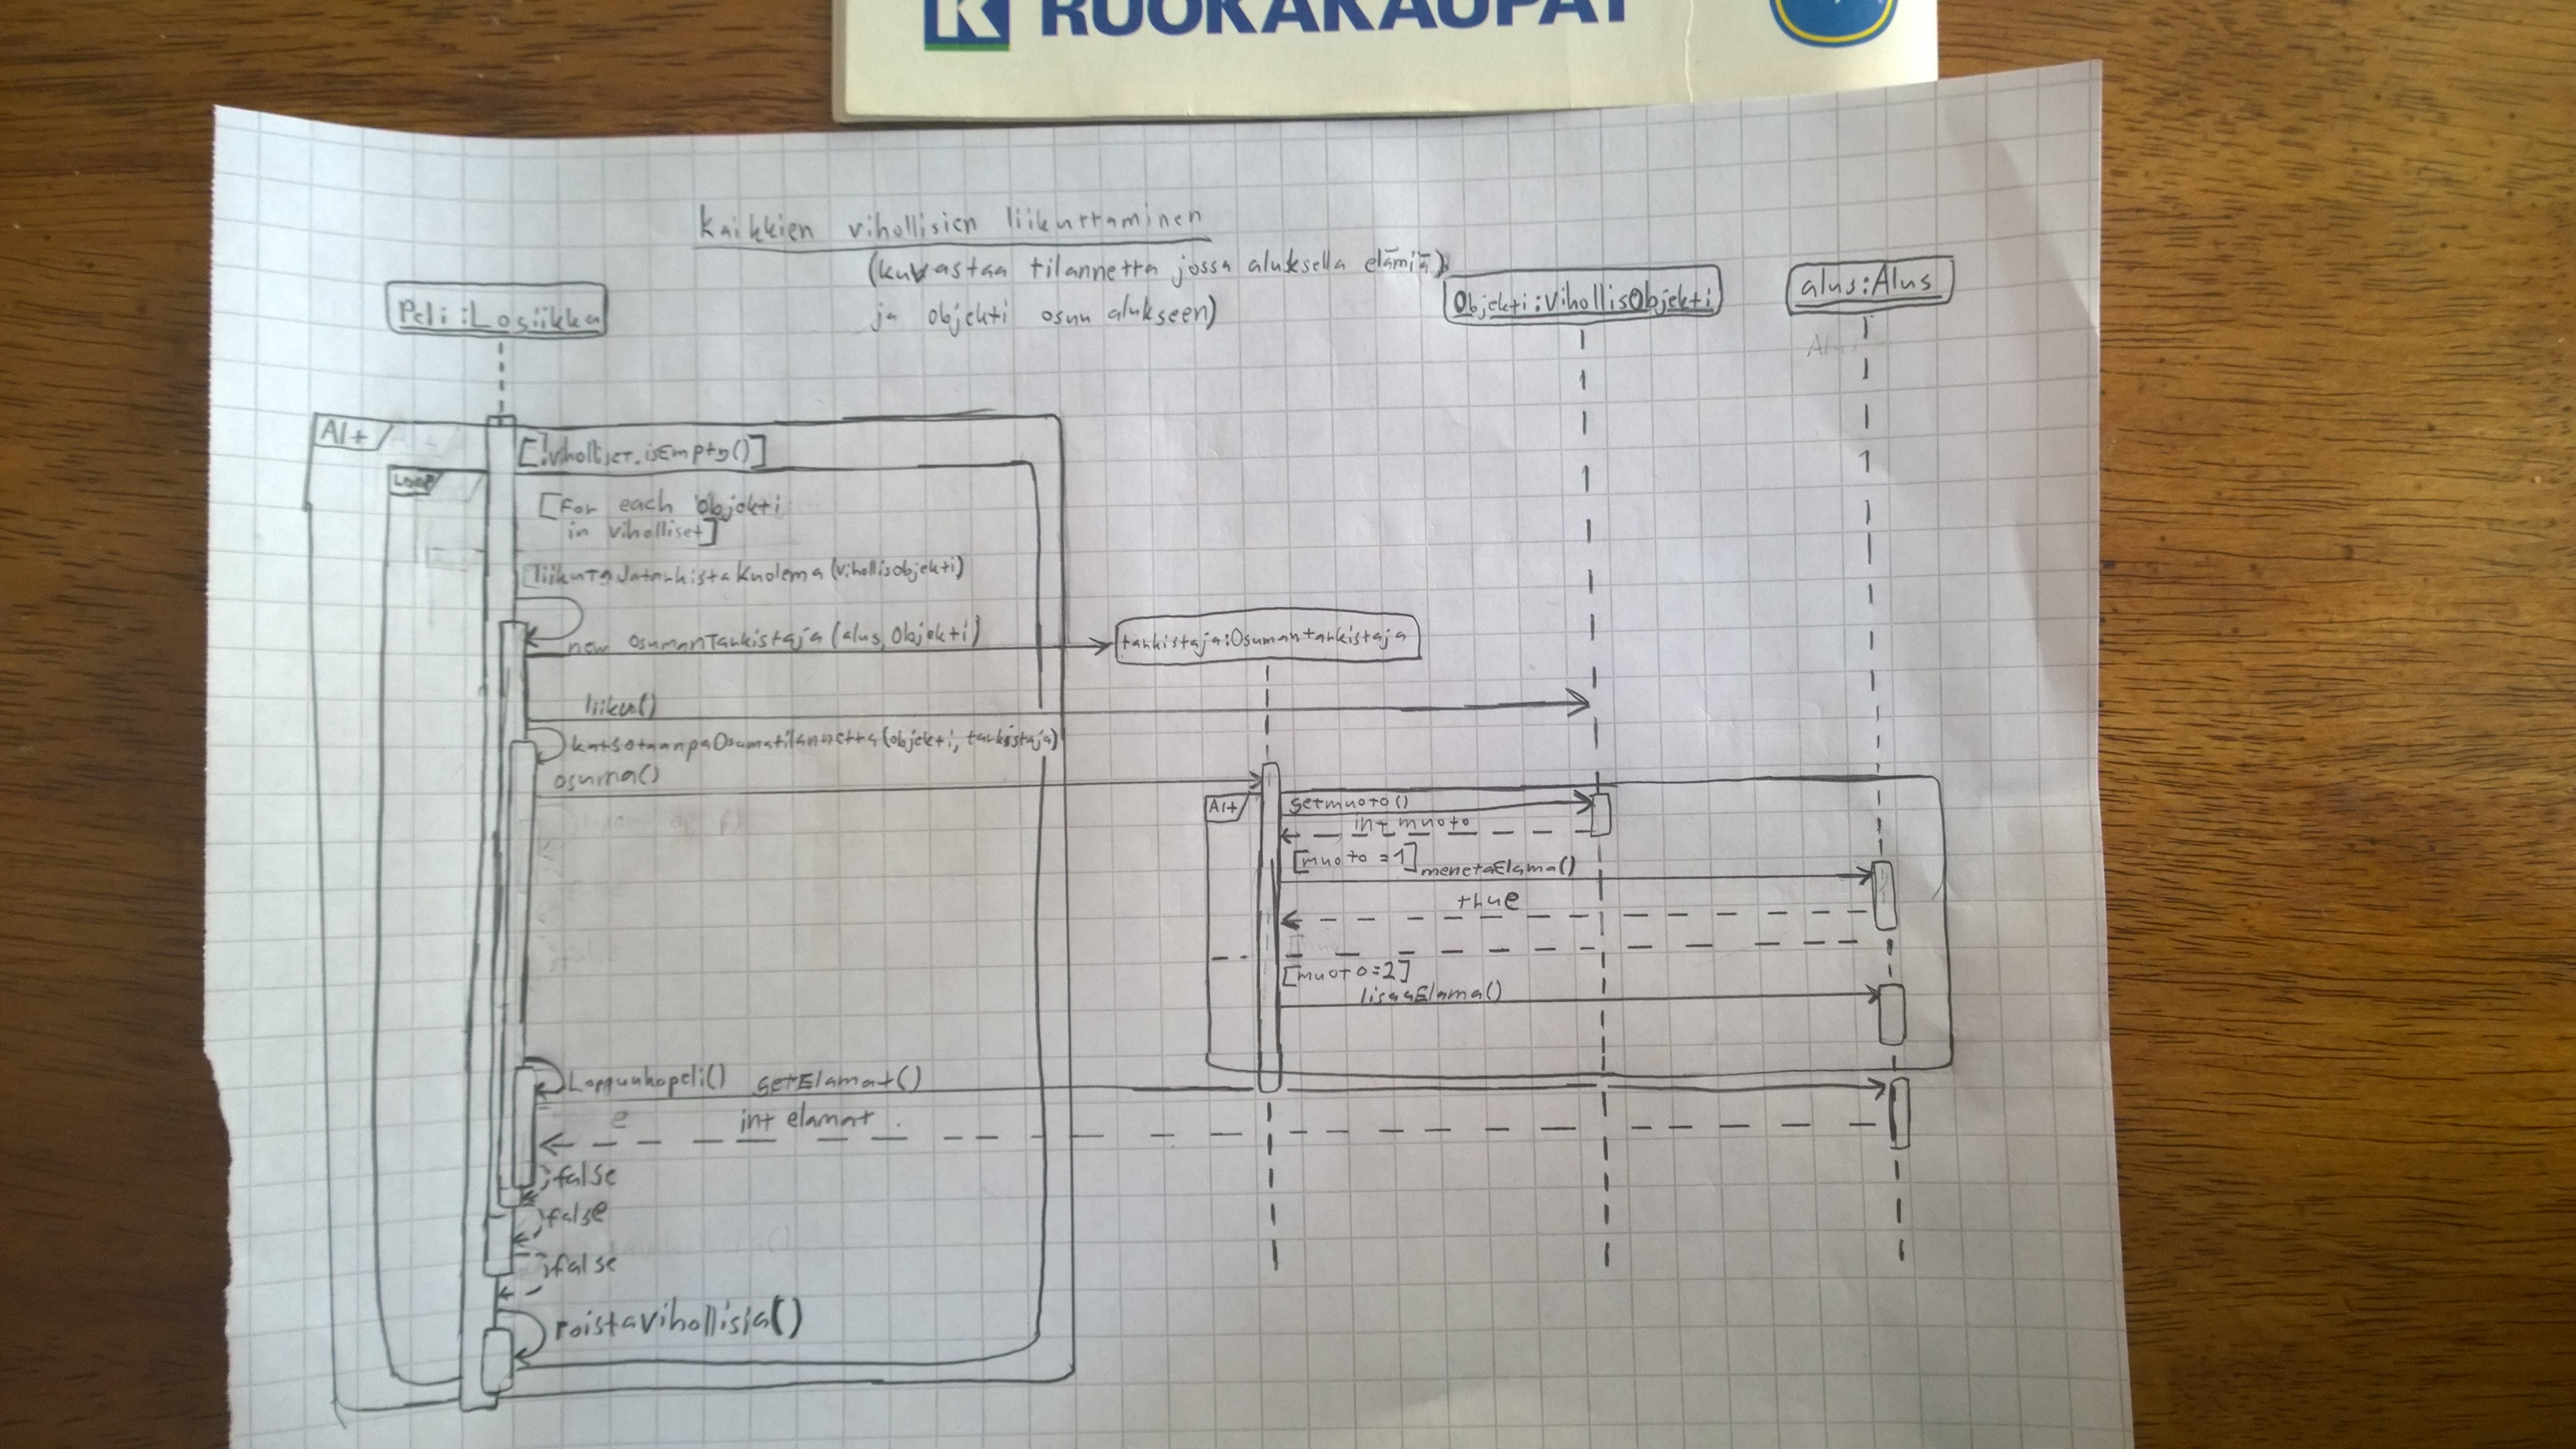 K RUOKAKAUPAT
Kaikkien vihollisien liikuttaminen
(kuvastaa tilannetta jossa aluksella elämiä)
ja objekti osuu alukseen)
Peli:Logiikka
Objekti:VihollisObjekti
alus:Alus
Alt
[!viholliset.isEmpty()]
Loop
[For each Objekti
in viholliset]
liikutaJatarkistaKuolema(vihollisobjekti)
new OsumanTarkistaja(alus, Objekti)
tarkistaja:Osumantarkistaja
liiku()
katsotaanpaOsumatilannetta(objekti, tarkistaja)
osuma()
Alt
getmuoto()
int muoto
[muoto=1] menetaElama()
true
[muoto=2]
lisaaElama()
Loppuukopeli() getElamat()
int elamat
false
false
false
poistaVihollisia()